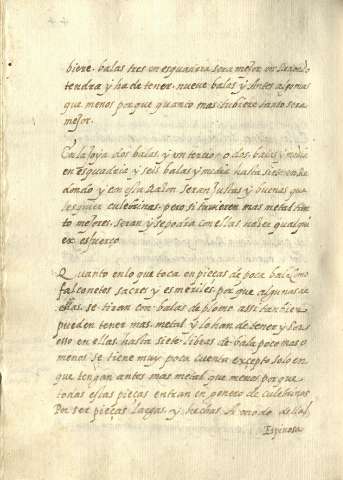 biere. balas tres en esquadria sera mejor en Redondo
tendra y ha de tener. nueve balas y Antes algo mas
que menos porque quanto mas. tubiere tanto sera
mejor.
En la Joya dos balas. y un tercio. o dos balas y media
en esquadria y seis balas y media hasta siete en Re
dondo y en esta Razon seran Justas y buenas que
culebrinas. pero si tuvieren mas metal tan
to mejores. seran y se podra con ellas hazer qualqui
er esfuerço
Quanto en lo que toca en pieças de poca bala como
falconetes sacres y esmeriles porque algunas de
ellas. se tiran con balas de plomo assi tanbien
pueden tener mas. metal y lo han de tener y Por
esto en ellas hasta siete libras de bala poco mas o
menos se tiene muy poca cuenta excepto solo en
que tengan antes mas metal que menos porque
todas estas pieças entran en genero de culebrinas
Por ser pieças largas. y hechas. A modo de las
Espinosa